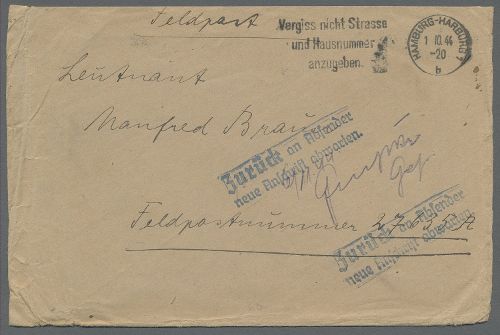 Feldpost
Vergiss nicht Strasse
und Hausnummer
anzugeben.
HAMBURG-HARBURG 1
1.10.44
-20
b
Leutnant
Manfred Braun
Zurück an Absender
neue Anschrift abwarten.
Feldpostnummer 27635 A
Zurück an Absender
neue Anschrift abwarten.